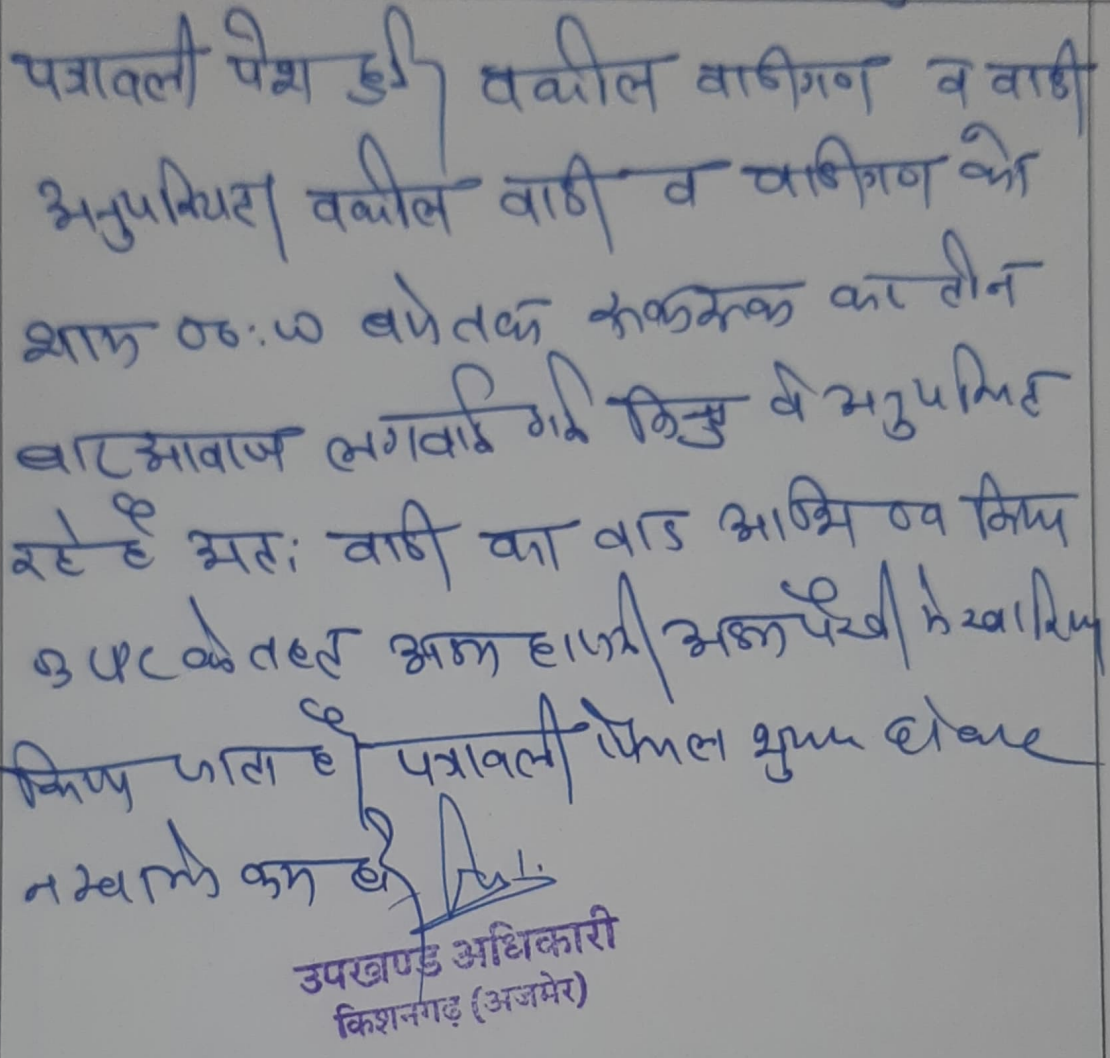 पत्रावली पेश हुई। वकील वादीगण व वादी
अनुपस्थित। वकील वादी व वादीगण को
शाम 06:00 बजे तक रूक रूक कर तीन
बार आवाज लगवाई गई किन्तु वे अनुपस्थित
रहे है अतः वादी का वाद
के तहत अदम हाजरी/अदम पैरवी में खारिज
किया जाता है। पत्रावली फैसल शुमार होकर
नम्बर से कम हो।
उपखण्ड अधिकारी
किशनगढ़ (अजमेर)